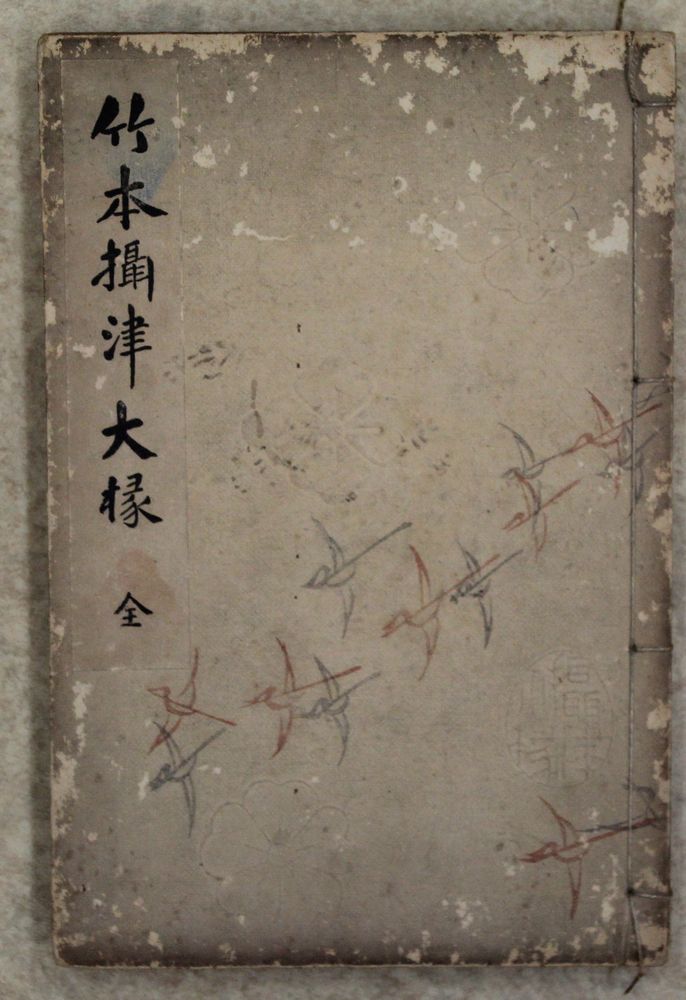 竹本攝津大掾
全